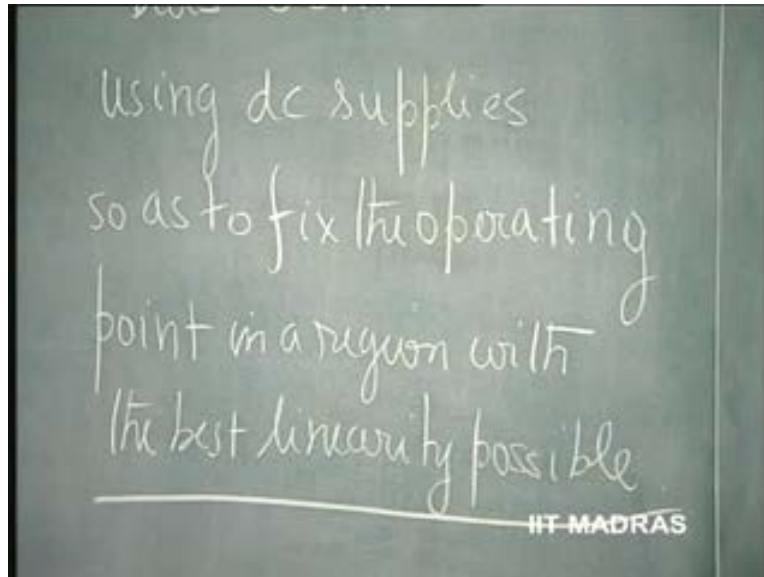 using dc supplies
so as to fix the operating
point in a region with
the best linearity possible
IIT MADRAS